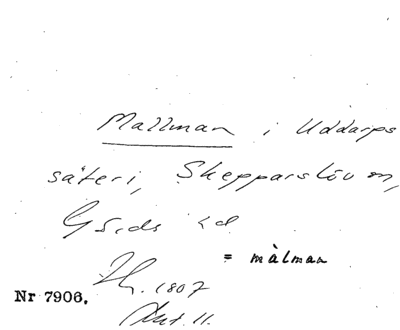 Mallman i Uddarps
säteri, Skepparslöv sn,
Gärds hd
= màlman
Fk. 1807
Akt. 11.
Nr 7906.